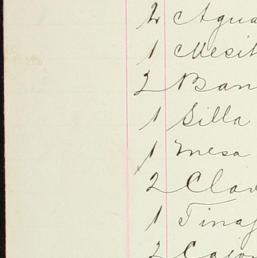 2 Agua
1 Mesit
2 Ban
1 Silla
1 Mesa
2 Clav
1 Tinaj
2 Cajon